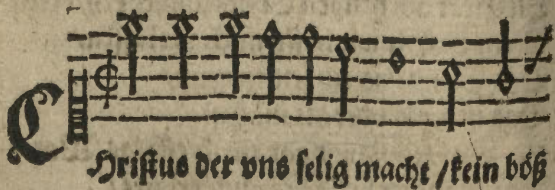 CHristus der vns selig macht / kein böß